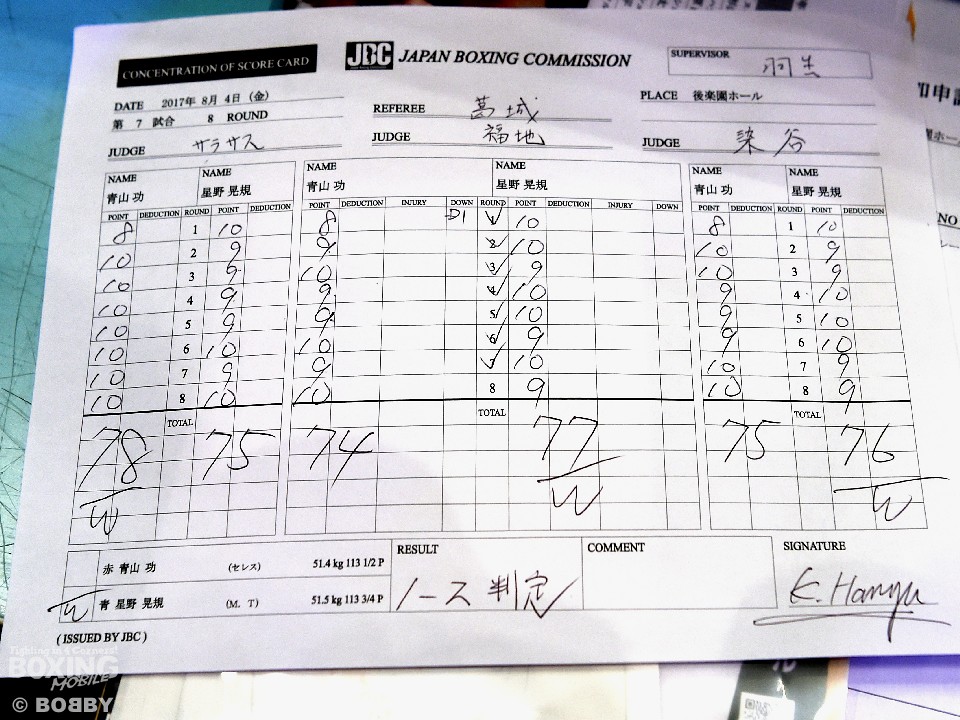 CONCENTRATION OF SCORE CARD
JBC JAPAN BOXING COMMISSION
SUPERVISOR 羽生
DATE 2017年 8月 4日 (金)
第 7 試合 8 ROUND
REFEREE 葛城
PLACE 後楽園ホール
JUDGE サラサス
JUDGE 福地
JUDGE 染谷
NAME NAME NAME NAME NAME NAME
青山 功 星野 晃規 青山 功 星野 晃規 青山 功 星野 晃規
POINT DEDUCTION ROUND POINT DEDUCTION POINT DEDUCTION INJURY DOWN ROUND POINT DEDUCTION INJURY DOWN POINT DEDUCTION ROUND POINT DEDUCTION
8 1 10 8 D1 1 10 8 1 10
10 2 9 9 2 10 10 2 9
10 3 9 10 3 9 10 3 9
10 4 9 9 4 10 9 4 10
10 5 9 9 5 10 9 5 10
10 6 10 10 6 9 9 6 10
10 7 9 9 7 10 10 7 9
10 8 10 10 8 9 10 8 9
TOTAL TOTAL TOTAL
78 75 74 77 75 76
W W W
赤 青山 功 (セレス) 51.4 kg 113 1/2 P
W 青 星野 晃規 (M. T) 51.5 kg 113 3/4 P
RESULT
1-2 判定
COMMENT
SIGNATURE
E. Hanyu
( ISSUED BY JBC )
Fighting in 4 Corners!
BOXING
MOBILE
© BOBBY
申
NO